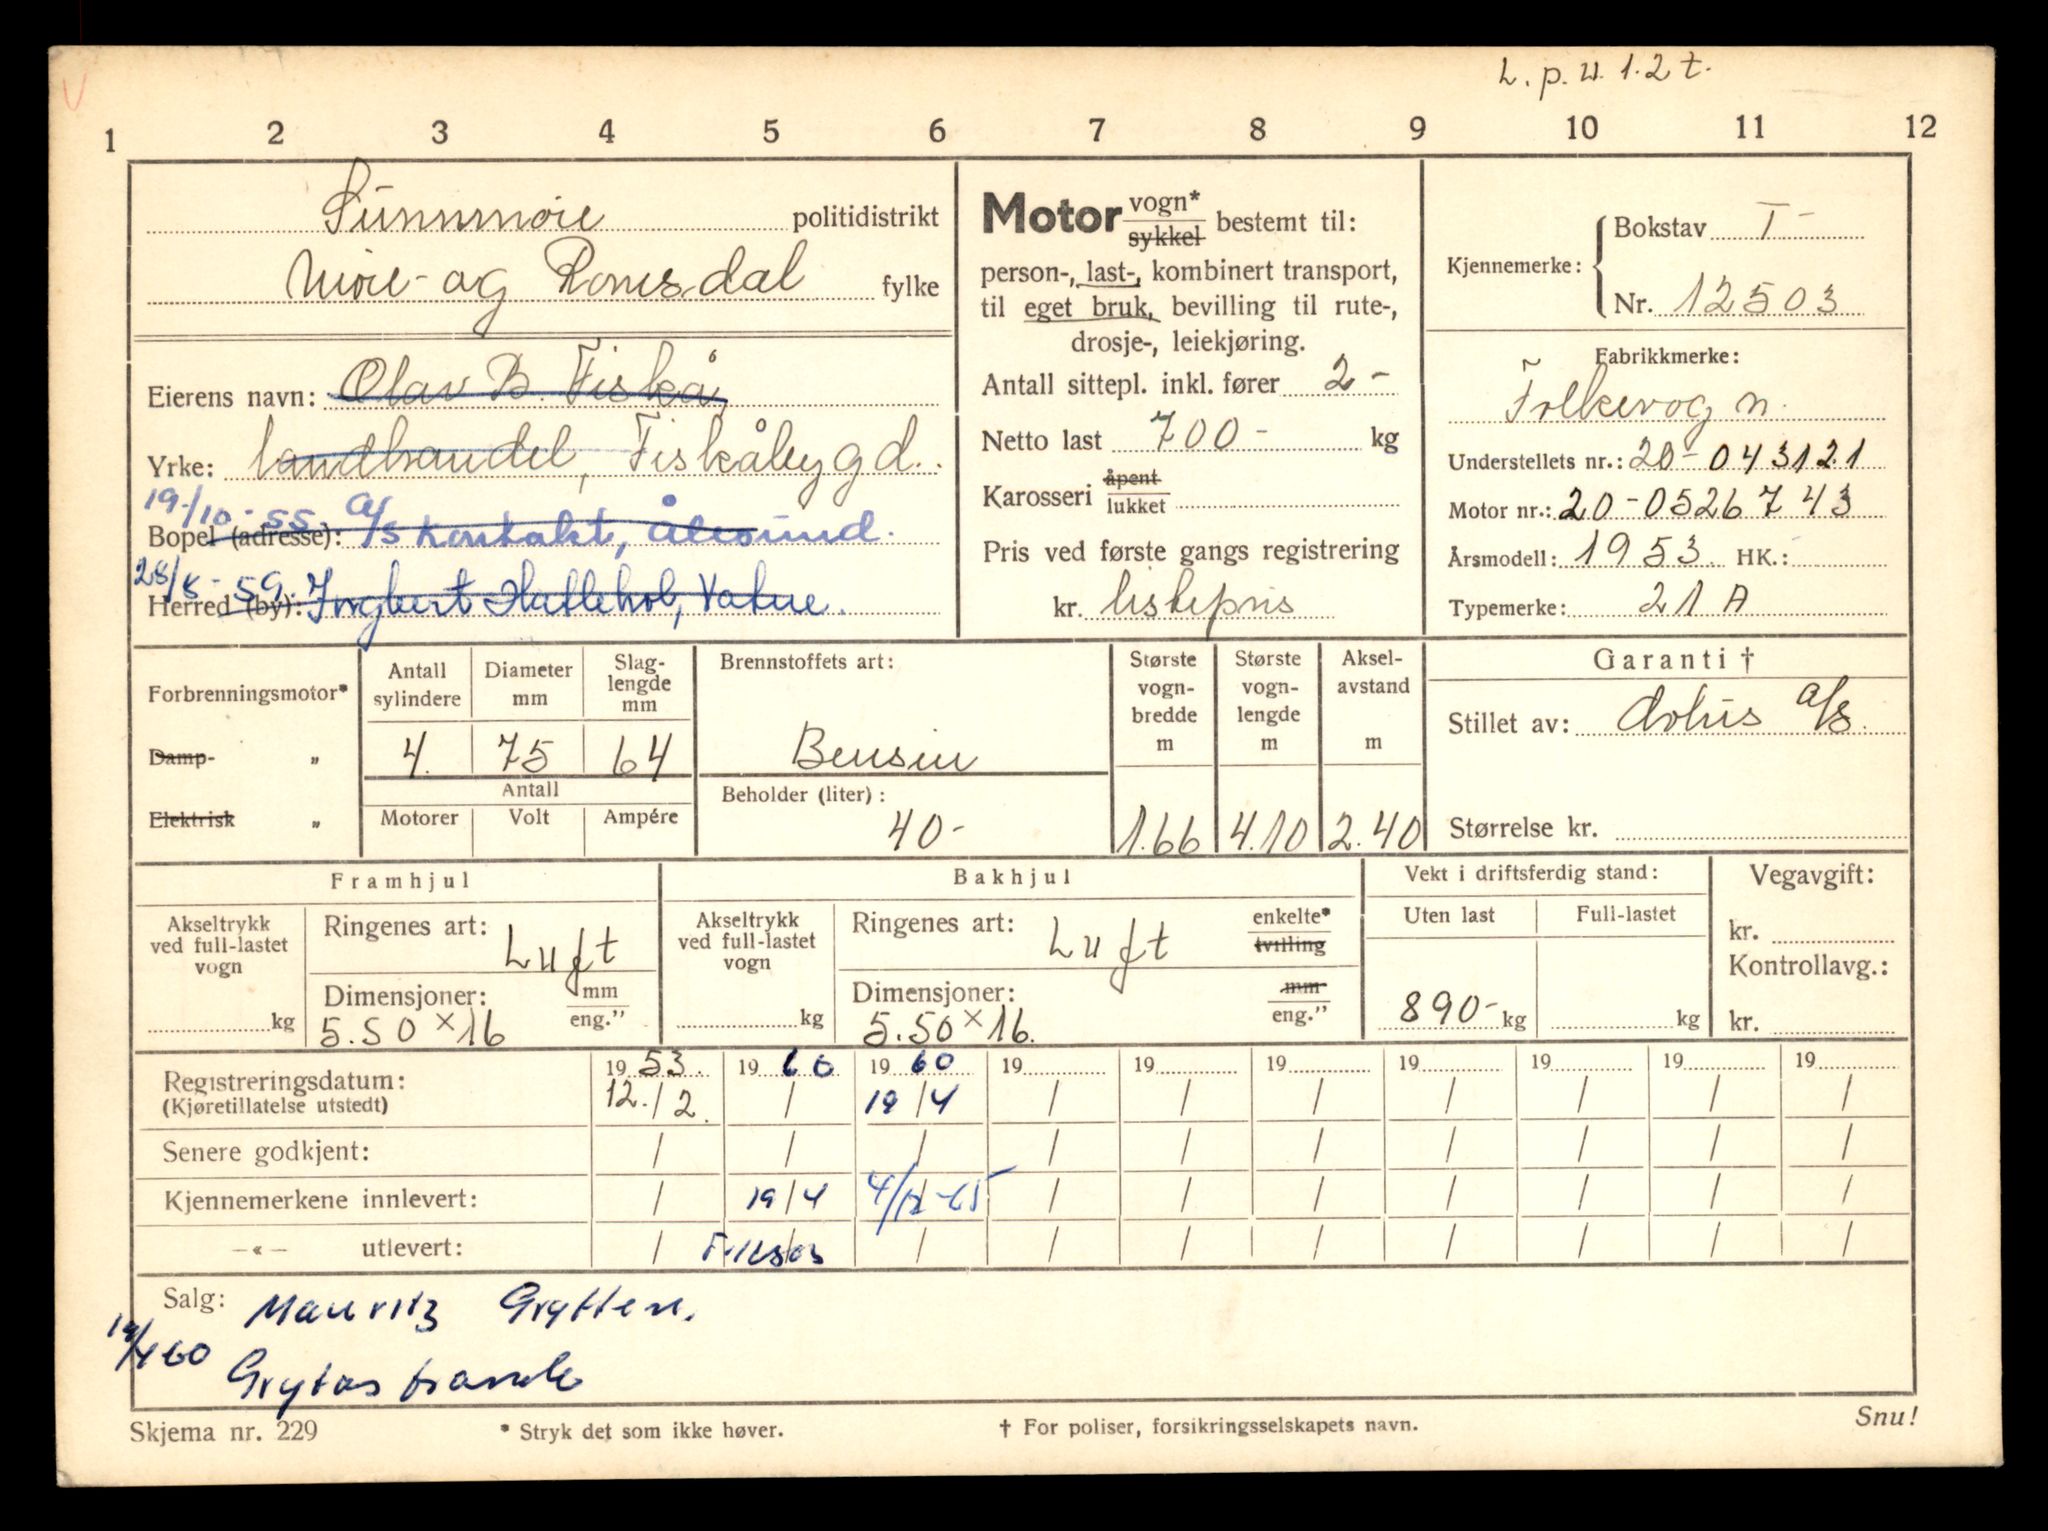 L.p.u. 1.2 t.
1 2 3 4 5 6 7 8 9 10 11 12
Sunnmøre politidistrikt
Møre- og Romsdal fylke
Eierens navn: Olav B. Fiskå
Yrke: landhandel, Fiskåbygd.
19/10-55 A/S Kontakt, Ålesund.
Bopel (adresse):
28/8-59. Ingbert Hatlehol, Vatne.
Herred (by):
Motor vogn* sykkel bestemt til:
person-, last-, kombinert transport,
til eget bruk, bevilling til rute-,
drosje-, leiekjøring.
Antall sittepl. inkl. fører 2-
Netto last 700- kg
Karosseri åpent lukket
Pris ved første gangs registrering
kr. listepris
Kjennemerke: Bokstav T-
Nr. 12503
Fabrikkmerke:
Folkevogn.
Understellets nr.: 20-043121
Motor nr.: 20-0526743
Årsmodell: 1953. HK.:
Typemerke: 21 A
Forbrenningsmotor*
Damp- „
Elektrisk „
Antall sylindere Diameter mm Slaglengde mm
4. 75 64
Antall
Motorer Volt Ampére
Brennstoffets art:
Bensin
Beholder (liter):
40-
Største vognbredde m
1.66
Største vognlengde m
4.10
Akselavstand m
2.40
Garanti †
Stillet av: A/S
Størrelse kr.
Framhjul
Akseltrykk ved full-lastet vogn
kg
Ringenes art: Luft
Dimensjoner: mm eng.”
5.50 x 16
Bakhjul
Akseltrykk ved full-lastet vogn
kg
Ringenes art: Luft enkelte* tvilling
Dimensjoner: mm eng.”
5.50 x 16.
Vekt i driftsferdig stand:
Uten last Full-lastet
890- kg kg
Vegavgift:
kr.
Kontrollavg.:
kr.
Registreringsdatum: 1953. 1960 1960 19 19 19 19 19 19 19
(Kjøretillatelse utstedt) 12./2. / 19/4 / / / / / / /
Senere godkjent: / / / / / / / / / /
Kjennemerkene innlevert: / 19/4 4/12-65 / / / / / / /
—«— utlevert: / / / / / / / / /
Salg: Mauritz Grytten.
19/4 60
Grytastrande
Skjema nr. 229
* Stryk det som ikke høver.
† For poliser, forsikringsselskapets navn.
Snu!